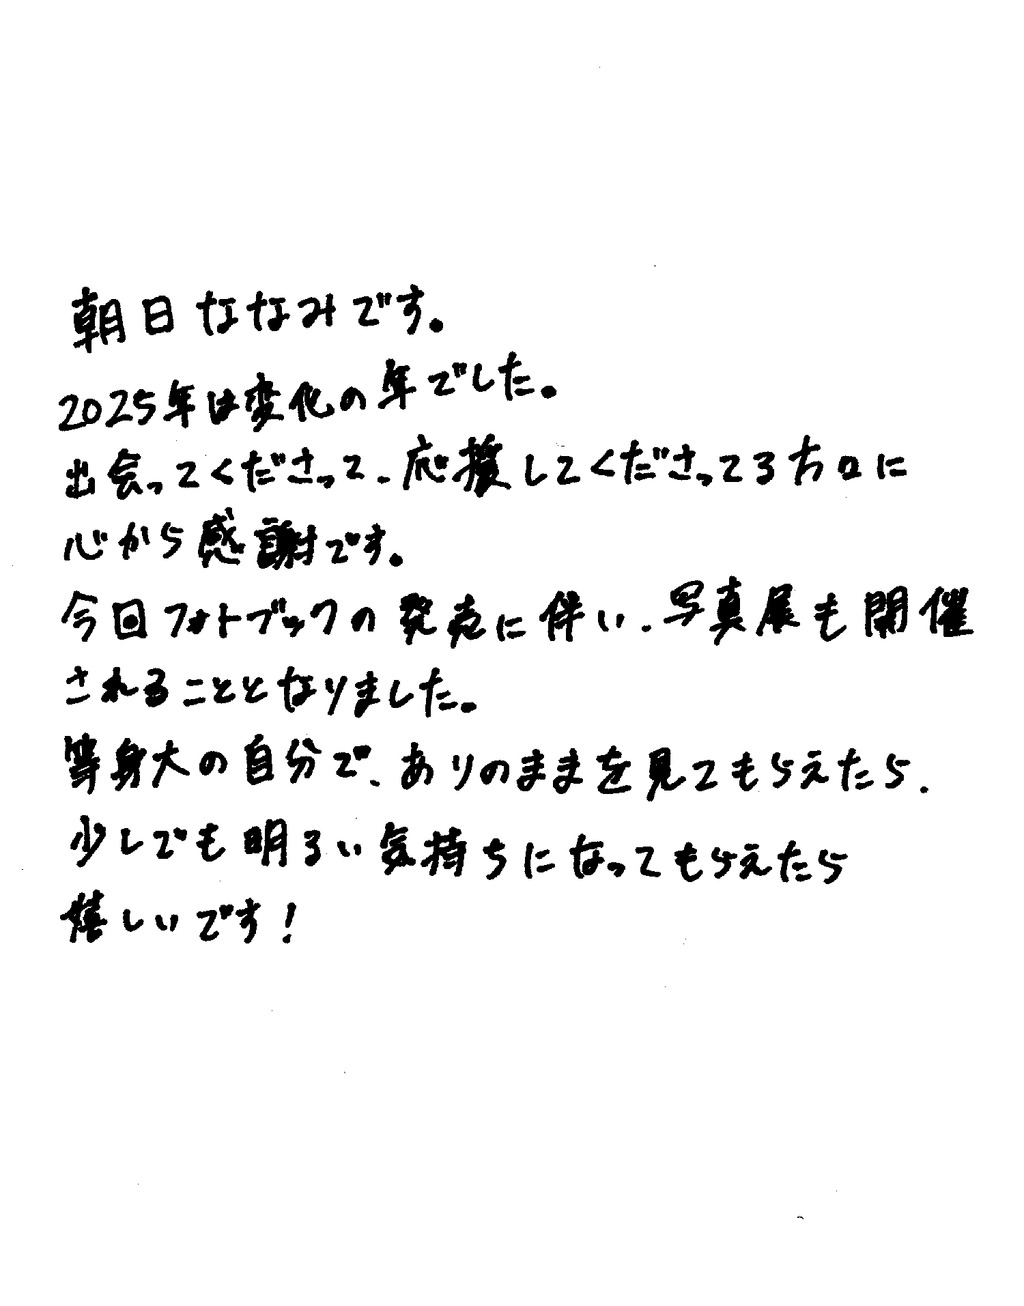 朝日ななみです。
2025年は変化の年でした。
出会ってくださって、応援してくださってる方々に
心から感謝です。
今回フォトブックの発売に伴い、写真展も開催
されることとなりました。
等身大の自分で、ありのままを見てもらえたら、
少しでも明るい気持ちになってもらえたら
嬉しいです！